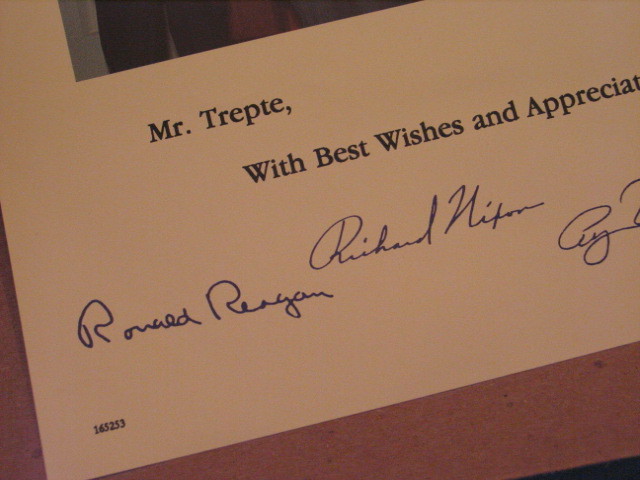 Mr. Trepte,
With Best Wishes and Appreciat
Richard Nixon
Ronald Reagan
165253